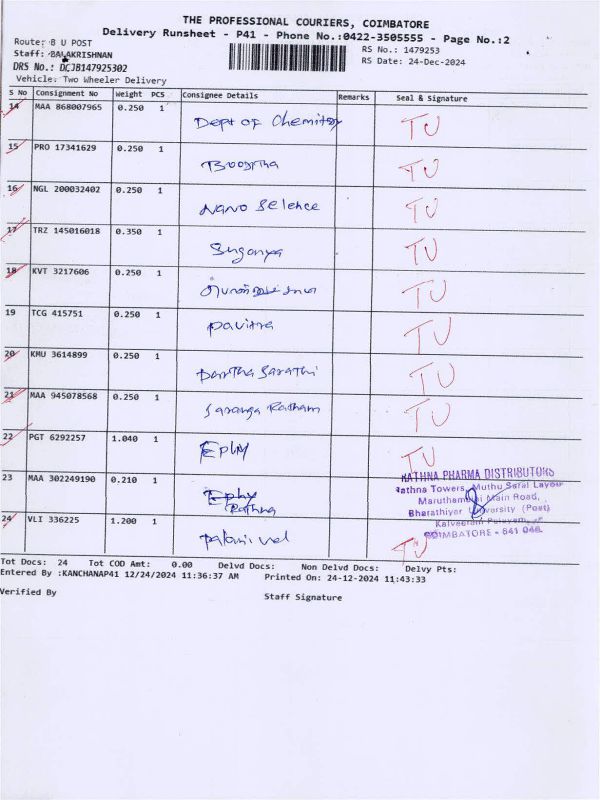 THE PROFESSIONAL COURIERS, COIMBATORE
Delivery Runsheet - P41 - Phone No.:0422-3505555 - Page No.:2
Route: B U POST
RS No.: 1479253
Staff: BALAKRISHNAN
RS Date: 24-Dec-2024
DRS No.: DCJB147925302
Vehicle: Two Wheeler Delivery
S No Consignment No Weight PCS Consignee Details Remarks Seal & Signature
14 MAA 868007965 0.250 1 Dept of Chemitsry TU
15 PRO 17341629 0.250 1 TU
16 NGL 200032402 0.250 1 Nano Selence TU
17 TRZ 145016018 0.350 1 Suganya TU
18 KVT 3217606 0.250 1 TU
19 TCG 415751 0.250 1 Pavitra TU
20 KMU 3614899 0.250 1 Partha Sarathi TU
21 MAA 945078568 0.250 1 Saranga Ratham TU
22 PGT 6292257 1.040 1 EPHY TU
23 MAA 302249190 0.210 1 Ephy
Rathna
RATHNA PHARMA DISTRIBUTORS
Rathna Towers, Muthu Saral Layout
Maruthamalai Main Road,
Bharathiyar University (Post)
Kalveeram Palayam,
COIMBATORE - 641 046.
24 VLI 336225 1.200 1 Palani vel TU
Tot Docs: 24 Tot COD Amt: 0.00 Delvd Docs: Non Delvd Docs: Delvy Pts:
Entered By :KANCHANAP41 12/24/2024 11:36:37 AM Printed On: 24-12-2024 11:43:33
Verified By Staff Signature